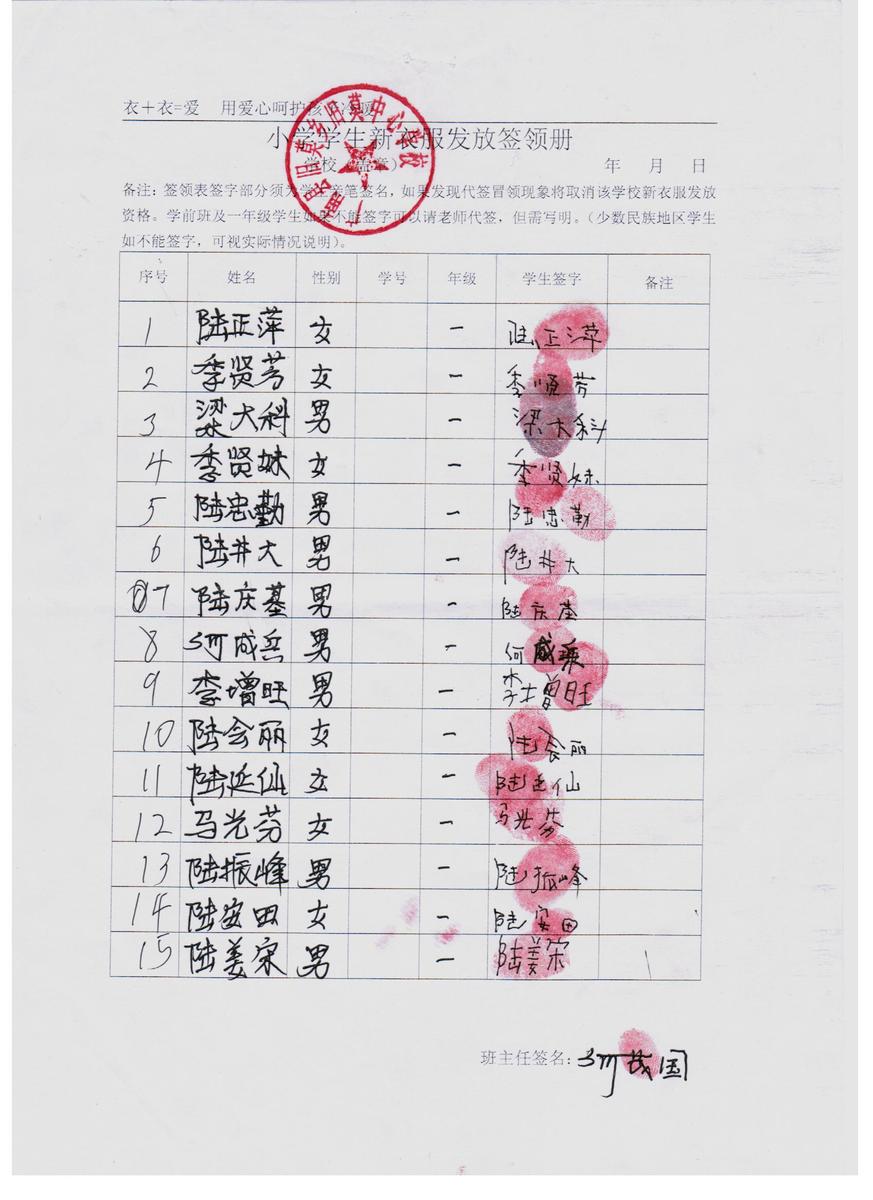 衣+衣=爱 用爱心呵护孩子冷暖
小学学生新衣服发放签领册
学校(盖章) 年 月 日
广南县旧莫乡旧莫中心学校
备注:签领表签字部分须为学生亲笔签名,如果发现代签冒领现象将取消该学校新衣服发放
资格。学前班及一年级学生如果不能签字可以请老师代签,但需写明。(少数民族地区学生
如不能签字,可视实际情况说明)。
序号 姓名 性别 学号 年级 学生签字 备注
1 陆正萍 女 一 陆正萍
2 季贤芳 女 一 季贤芳
3 梁大科 男 一 梁大科
4 季贤妹 女 一 季贤妹
5 陆忠勤 男 一 陆忠勤
6 陆井大 男 一 陆井大
7 陆庆基 男 一 陆庆基
8 何成兵 男 一 何
9 李增旺 男 一 李增旺
10 陆会丽 女 一 陆会丽
11 陆延仙 女 一 陆延仙
12 马光芬 女 一 马光芬
13 陆振峰 男 一 陆振峰
14 陆安田 女 一 陆安田
15 陆姜宋 男 一 陆姜宋
班主任签名:何茂国